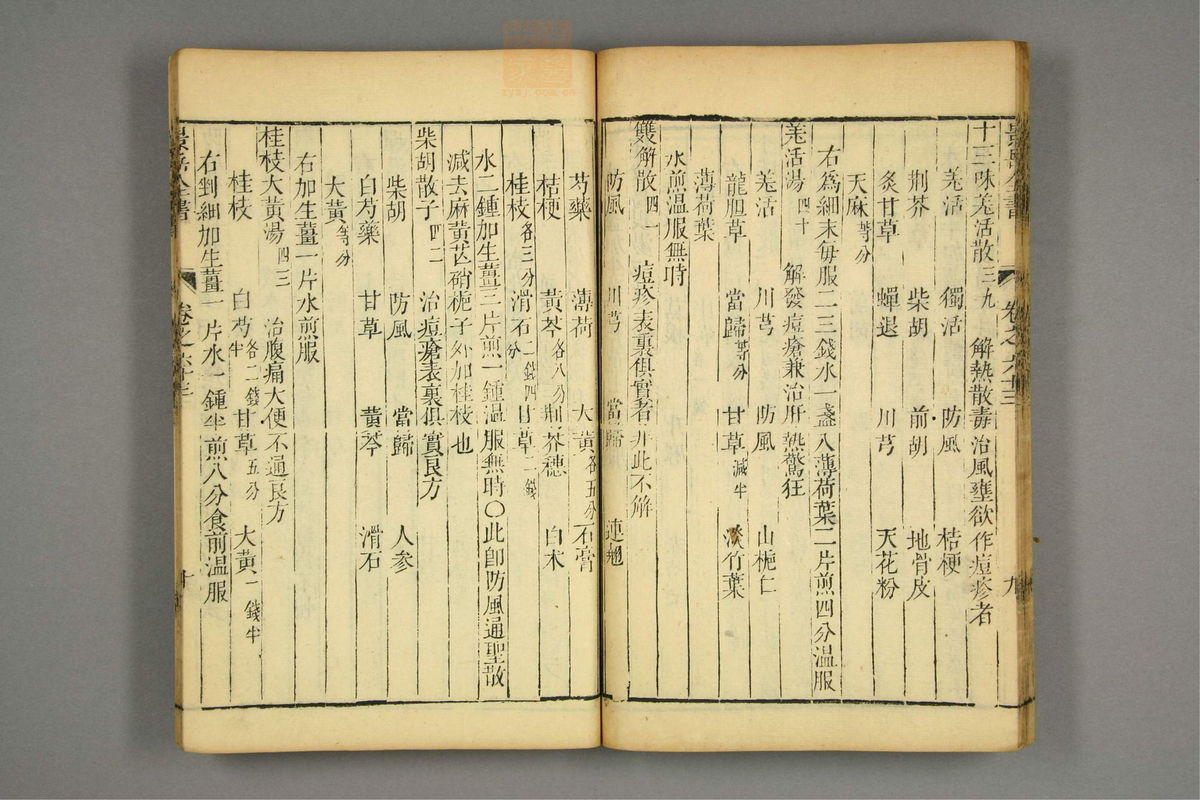 景岳全書
卷之六十三
九
十三味羗活散三九 解熱散毒治風壅欲作痘疹者
羗活 獨活 防風 桔梗
荆芥 柴胡 前胡 地骨皮
炙甘草 蟬退 川芎 天花粉
天麻等分
右爲細末每服二三錢水一盞入薄荷葉二片煎四分温服
羗活湯四十 解發痘瘡兼治肝熱驚狂
羗活 川芎 防風 山梔仁
龍胆草 當歸等分 甘草減半 淡竹葉
薄荷葉
水煎温服無時
雙解散四一 痘疹表裏俱實者非此不解
防風 川芎 當歸 連翹
芍藥 薄荷 大黄各五分 石膏
桔梗 黄芩各八分 荆芥穗 白术
桂枝各三分 滑石二錢四分 甘草一錢
水二鍾加生薑三片煎一鍾温服無時○此卽防風通聖散
減去麻黄芒硝梔子外加桂枝也
柴胡散子四二 治痘瘡表裏俱實良方
柴胡 防風 當歸 人參
白芍藥 甘草 黄芩 滑石
大黄等分
右加生薑一片水煎服
桂枝大黄湯四三 治腹痛大便不通良方
桂枝 白芍各二錢半 甘草五分 大黄一錢半
右剉細加生薑一片水一鍾半煎八分食前温服
景岳全書
卷之六十三
十